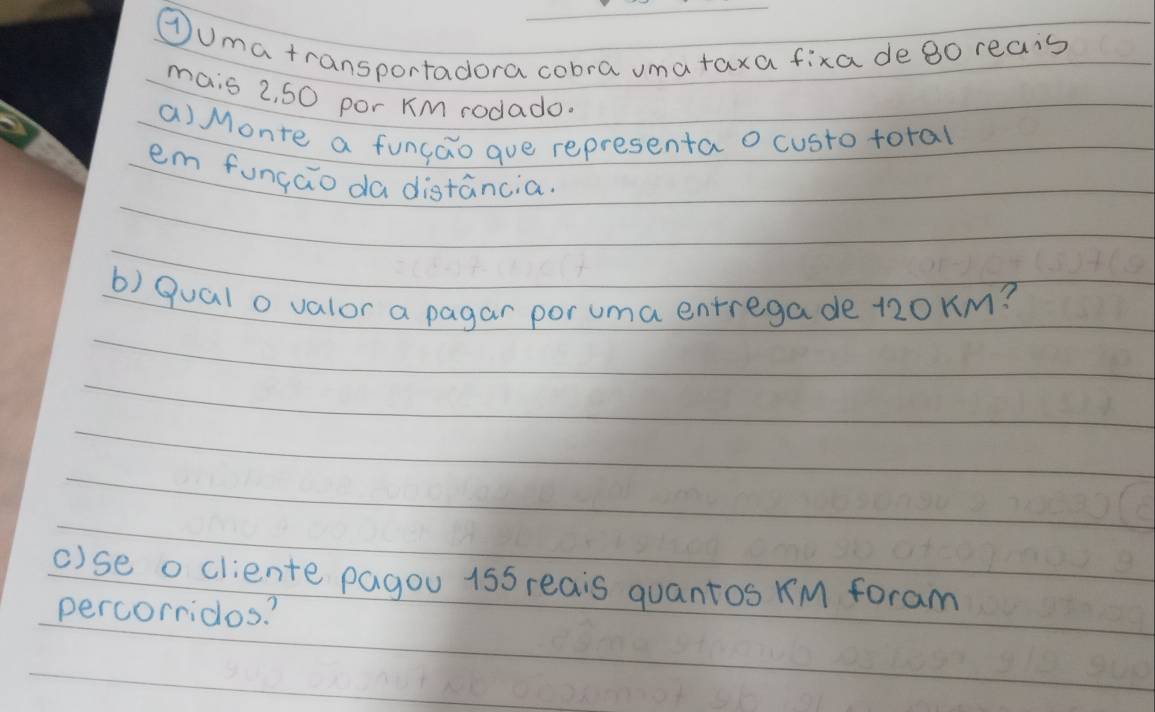 ① Uma transportadora cobra uma taxa fixa de 80 reais
mais 2,50 por KM rodado.
a) Monte a função que representa o custo total
em função da distância.
b) Qual o valor a pagar por uma entrega de 120 KM?
c) se o cliente pagou 155 reais quantos KM foram
percorridos?